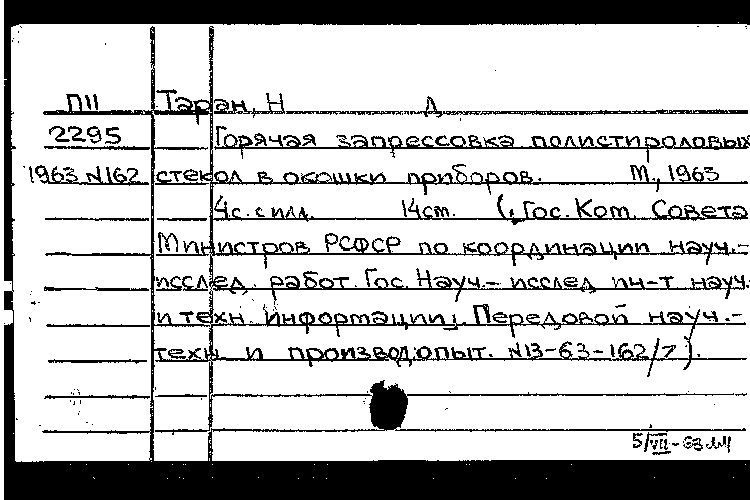 П11 Таран, Н Д
2295 Горячая запрессовка полистироловых
1963 N162 стекол в окошки приборов. М., 1963
4с. с илл. 14см. (Гос. Ком. Совета
Министров РСФСР по координации науч.-
исслед. работ. Гос. Науч.- исслед ин-т науч.
и техн. информации. Передовой науч.-
техн. и производ. опыт. N13-63-162/7).
5/VII-63